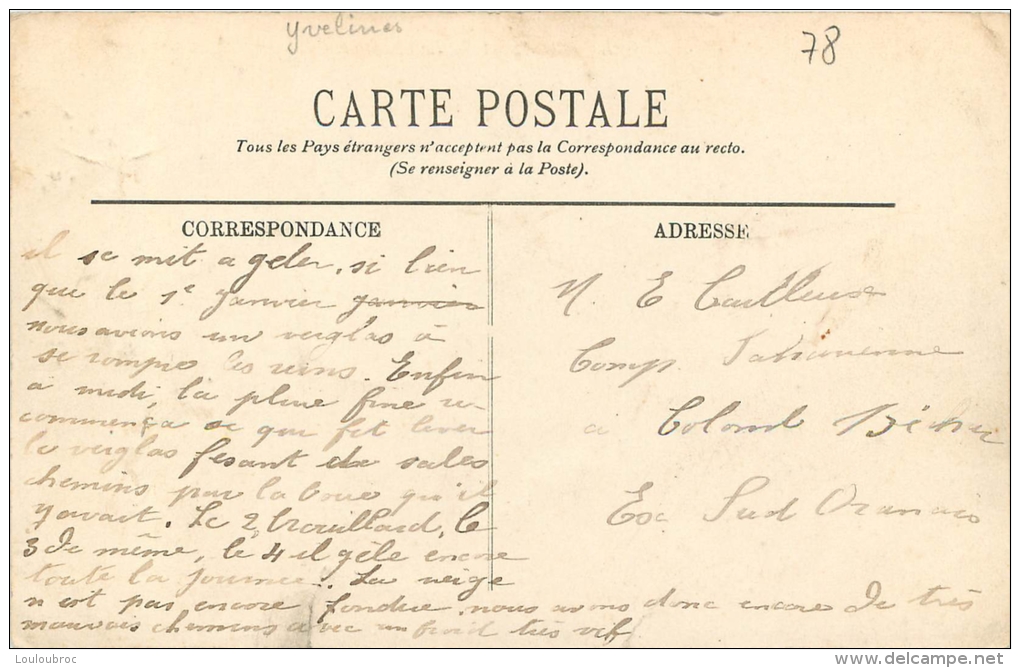 yvelines
78
CARTE POSTALE
Tous les Pays étrangers n'acceptent pas la Correspondance au recto.
(Se renseigner à la Poste).
CORRESPONDANCE
il se mit a geler, si bien
que le 1e janvier janvier
nous avions un verglas à
se rompre les reins. Enfin
a midi, la pluie fine re-
commença se qui fit lever
le verglas fesant de sales
chemins par la boue qu'il
y avait. Le 2 brouillard, le
3 de même, le 4 il gèle encore
toute la journee. La neige
n'est pas encore fondue, nous avons donc encore de très
mauvais chemins avec un froid très vif
ADRESSE
M. E Cailleuse
Comp Saharienne
a Colomb Béchar
Ext Sud Oranais
Louloubroc
http://www.delcampe.net